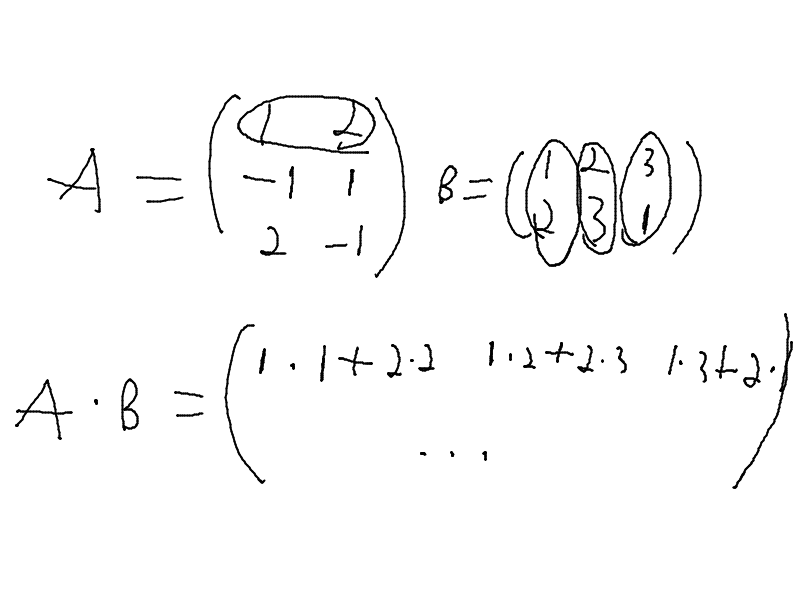 A = ( 1 2
-1 1
2 -1 ) B = ( 1 2 3
2 3 1 )
A · B = ( 1 · 1 + 2 · 2 1 · 2 + 2 · 3 1 · 3 + 2 · 1
. . . )